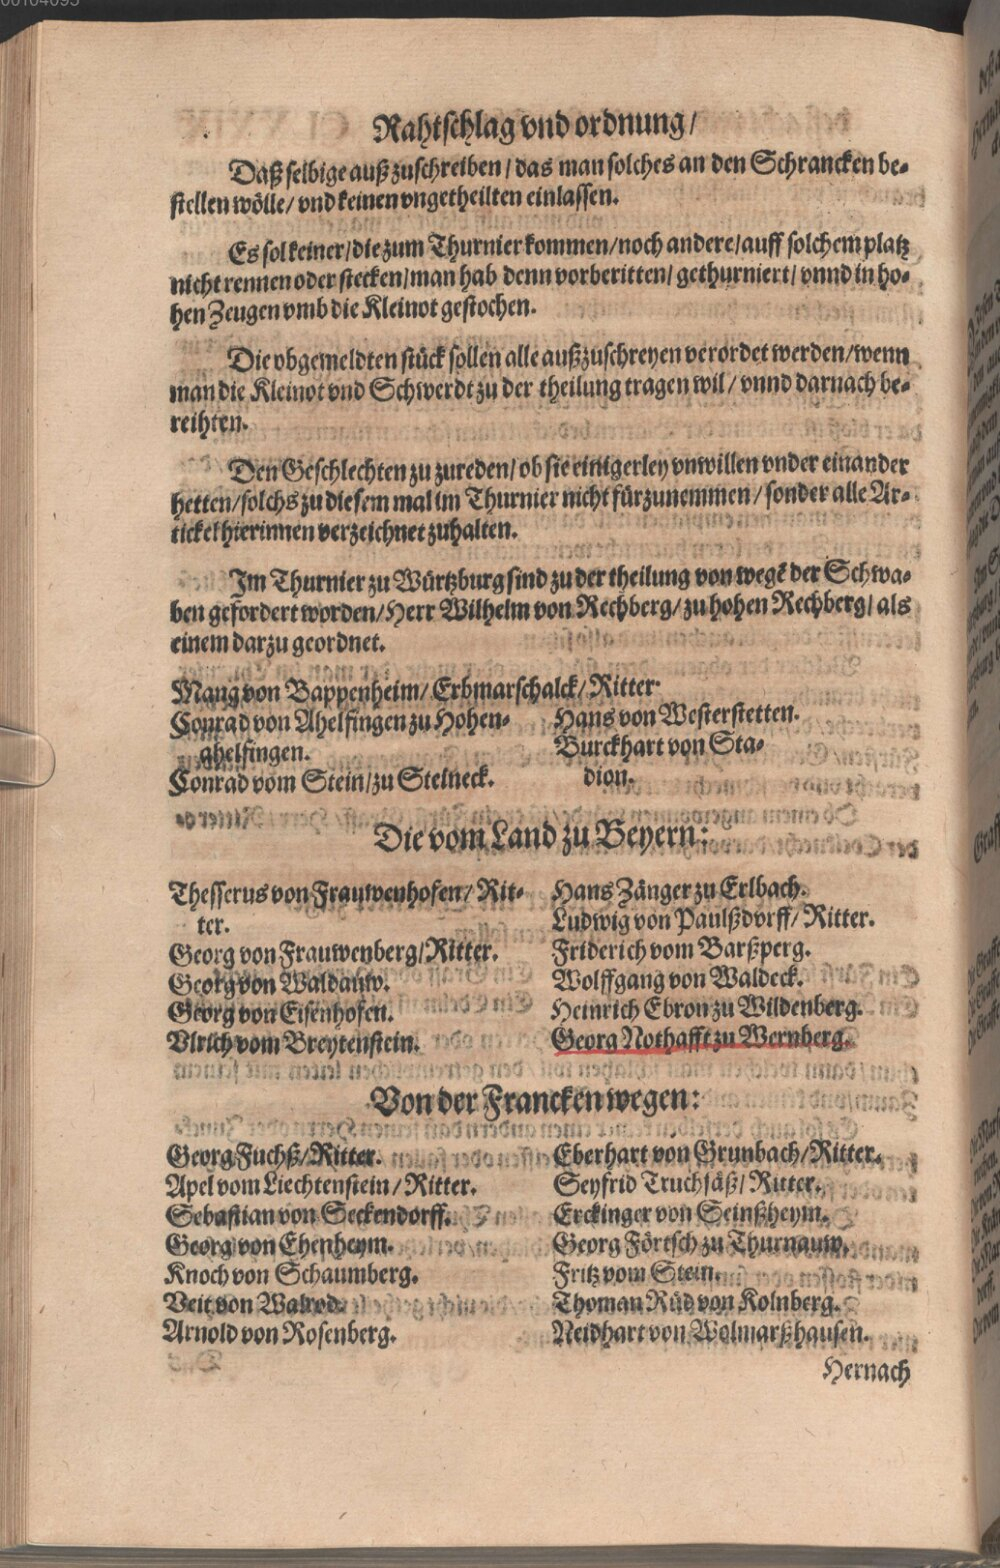 00104095
Rahtschlag vnd ordnung/
Daß selbige außzuschreiben/ das man solches an den Schrancken be-
stellen wölle/ vnd keinen vngetheilten einlassen.
Es sol keiner/ die zum Thurnier kommen/ noch andere/ auff solchem platz
nicht rennen oder stecken/ man hab denn vorberitten/ gethurniert/ vnnd in ho-
hen Zeugen vmb die Kleinot gestochen.
Die obgemeldten stück sollen alle außzuschreyen verordet werden/ wenn
man die Kleinot vnd Schwerdt zu der theilung tragen wil/ vnnd darnach be-
reihten.
Den Geschlechten zu zureden/ ob sie einigerley vnwillen vnder einander
hetten/ solchs zu diesem mal im Thurnier nicht fürzunemmen/ sonder alle Ar-
tickel hierinnen verzeichnet zuhalten.
Im Thurnier zu Würtzburg sind zu der theilung von wegē der Schwa-
ben gefordert worden/ Herr Wilhelm von Rechberg/ zu hohen Rechberg/ als
einem darzu geordnet.
Mang von Bappenheim/ Erbmarschalck/ Ritter.
Conrad von Ahelfingen zu Hohen-
ahelfingen.
Conrad vom Stein/ zu Steineck.
Hans von Westerstetten.
Burckhart von Sta-
dion.
Die vom Land zu Beyern:
Thesserus von Frauwenhofen/ Rit-
ter.
Georg von Frauwenberg/ Ritter.
Georg von Waldauw.
Georg von Eisenhofen.
Vlrich vom Breytenstein.
Hans Zänger zu Erlbach.
Ludwig von Paulßdorff/ Ritter.
Friderich vom Barßperg.
Wolffgang von Waldeck.
Heinrich Ebron zu Wildenberg.
Georg Nothafft zu Wernberg.
Von der Francken wegen:
Georg Fuchß/ Ritter.
Apel vom Liechtenstein/ Ritter.
Sebastian von Seckendorff.
Georg von Ehenheym.
Knoch von Schaumberg.
Veit von Walrod.
Arnold von Rosenberg.
Eberhart von Grunbach/ Ritter.
Seyfrid Truchsäß/ Ritter.
Erckinger von Seinßheym.
Georg Förtsch zu Thurnauw.
Fritz vom Stein.
Thoman Rüd von Kolnberg.
Neidhart von Wolmarßhausen.
Hernach